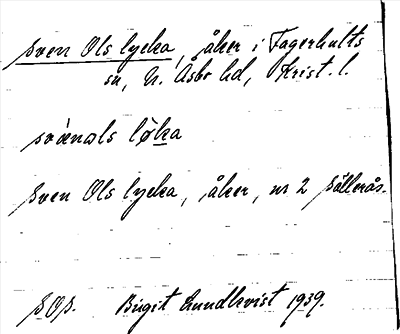 Sven Ols lycka, åker i Fagerhults
sn, N. Åsbo hd, Krist. l.
svænols løka
Sven Ols lycka, åker, nr 2
Birgit Lundkvist 1939.